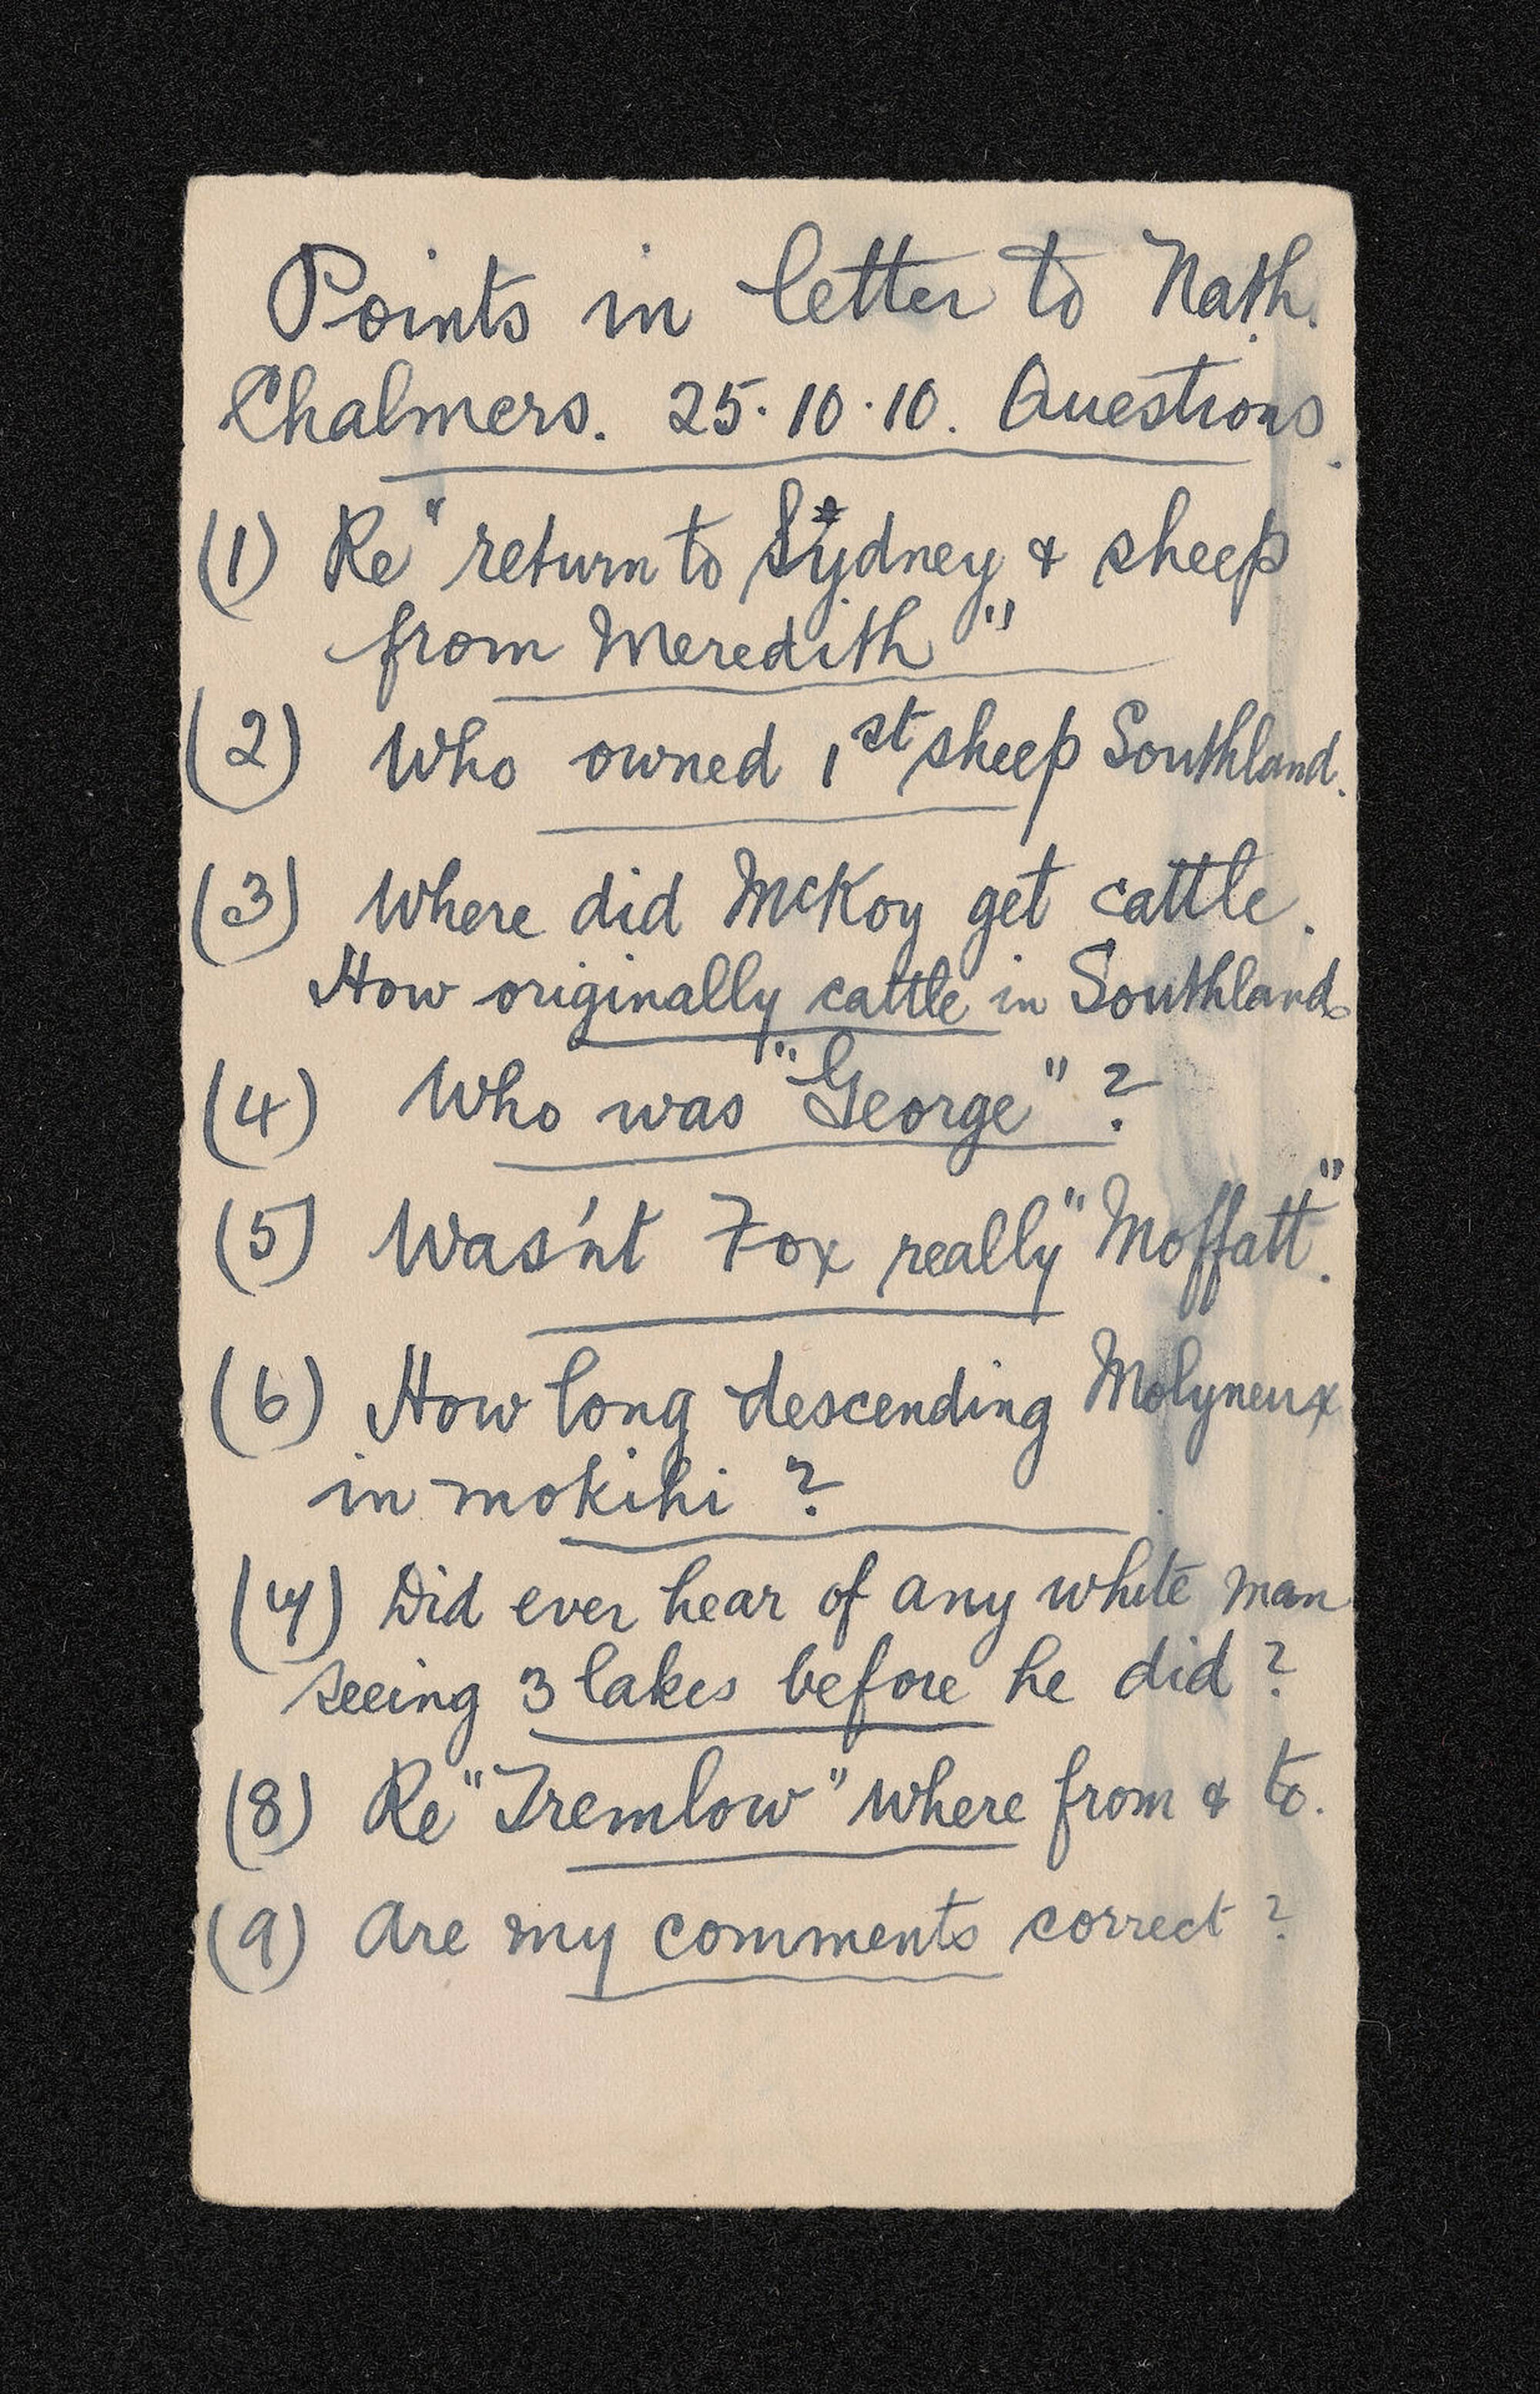 Points in letter to Nath.
Chalmers. 25.10.10. Questions.
(1) Re "return to Sydney & sheep
from Meredith"
(2) Who owned 1st sheep Southland.
(3) Where did McKoy get cattle.
How originally cattle in Southland.
(4) Who was "George" ?
(5) Was'nt Fox really "Moffatt".
(6) How long descending Molyneux
in mokihi ?
(7) Did ever hear of any white man
seeing 3 lakes before he did ?
(8) Re "Tremlow" where from & to.
(9) Are my comments correct ?